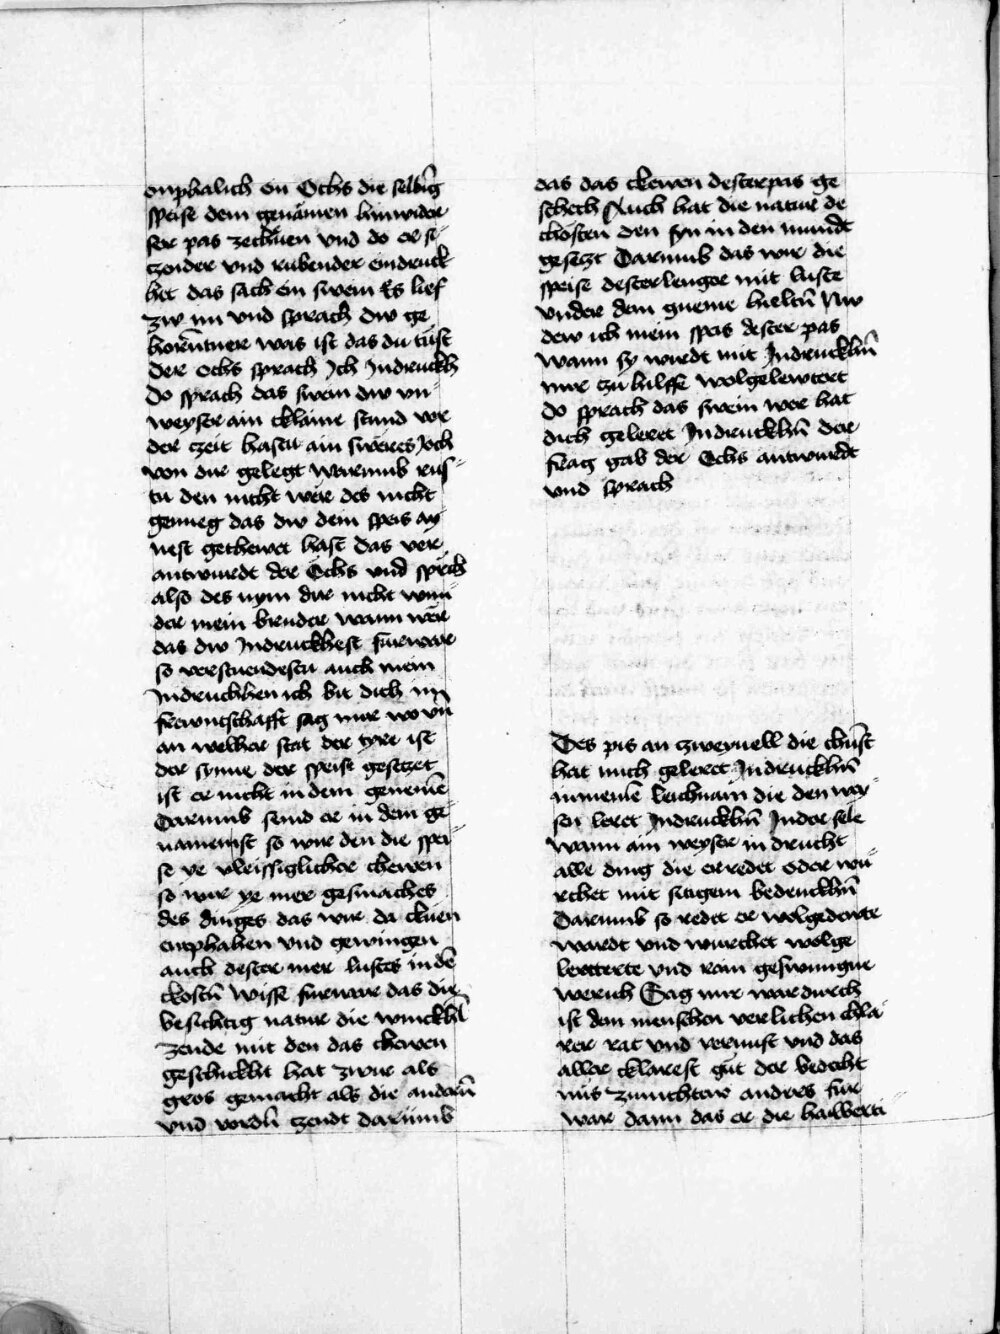 enphalich ein Ochs die selbig̃
speise dem genämen hinwider
ser pas zechüen vnd do er si-
czender vnd rubender eindruck
het das sach ein swein Es lief
zw im vnd sprach dw ge
horñtner was ist das du tüst
der ochs sprach Ich Indruckh
do sprach das swein dw vn
weyser ain cklaine stund vor
der czeit hastu ain swëres Joch
von dir gelegt warumb rüs-
tu den nicht wër des nicht
genueg das dw dein speis ay
nest gethewet hast das ver
antwurdt der Ochs vnd sprch
also des nym dir nicht wun-
der mein brueder wann wër
das dw Indruckhest furwar
so verstuendestu auch mein
Indruckhen ich bit dich in
frewntschafft sag mir wo vñ
an welher stat der tyre ist
der synne der speise gesetzet
ist er nicht in dem genemẽ
Darumb send er in dem ge-
namemst so wir den die spei-
se ye vleissiglicher chewen
so wir ye mer gesmaches
des dinges das wir da ckuen
enphahen vnd gewingen
auch dester mer lustes in dẽ
ckostñ Wisse furwar das die
besichtig natur die winckhl
zende mit den das chewen
geschickht hat zwir als
gros gemacht als die anderñ
vnd vordñ czendt darumb
das das ckewen desterpas ge
schech Auch hat die natur de
ckösten den syn in den mundt
gesetzt Darumb das wir die
speise desterlenger mit luste
vnder dem gueme hieltñ Nw
dew ich mein speis dester pas
wann sy wirdt mit Indruckhñ
mir czu hilffe wolgelewtert
do sprach das swein wer hat
dich geleret Indruckhñ der
frag gab der Ochs antwurdt
vnd sprach
Des pis an czweyuell die chũst
hat mich geleret Indruckhñ
in meinẽ leichnam die den wey-
sen leret Indruckhñ In der sele
wann ain weyser in drucht
alle ding die er redet oder wu-
rchet mit sitigem bedruckhñ
Darumb so redet er wolgedewte
wardt vnd wurchet wolge
lewtterte vnd rain geswungne
werich Sag mir war durch
ist den menschen verlichen chla
rer rat vnd vernuft vnd das
aller cklarest gut der bedecht
nüs zunichtew anders fur
war dann das er die hailwerti-